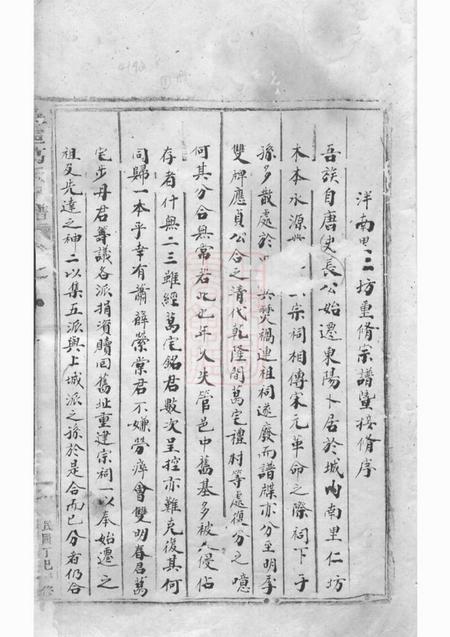 泮南里三坊重脩宗譜暨接脩序
吾族自唐史長公始遷東陽卜居於城内南里仁坊
木本水源 宗祠相傳宋元革命之際祠下子
孫多散處於 兵焚禍連祖祠遂廢而譜牒亦分至明季
雙碑應貞公合之清代乾隆間萬宅禮村等處復分之噫
何其分合無常若此也年久失管邑中舊基多被人侵佔
存者什無二三雖經萬宅銘君數次呈控亦難克復其何
同歸一本乎幸有蕭薛縈棠君不嫌勞瘁會雙明春呂萬
宅步丹君籌議各派捐資贖回舊址重建宗祠一以奉始遷之
祖及先達之神二以集五派與上城派之孫於是合而已分者仍合
民國丁巳 脩
譜